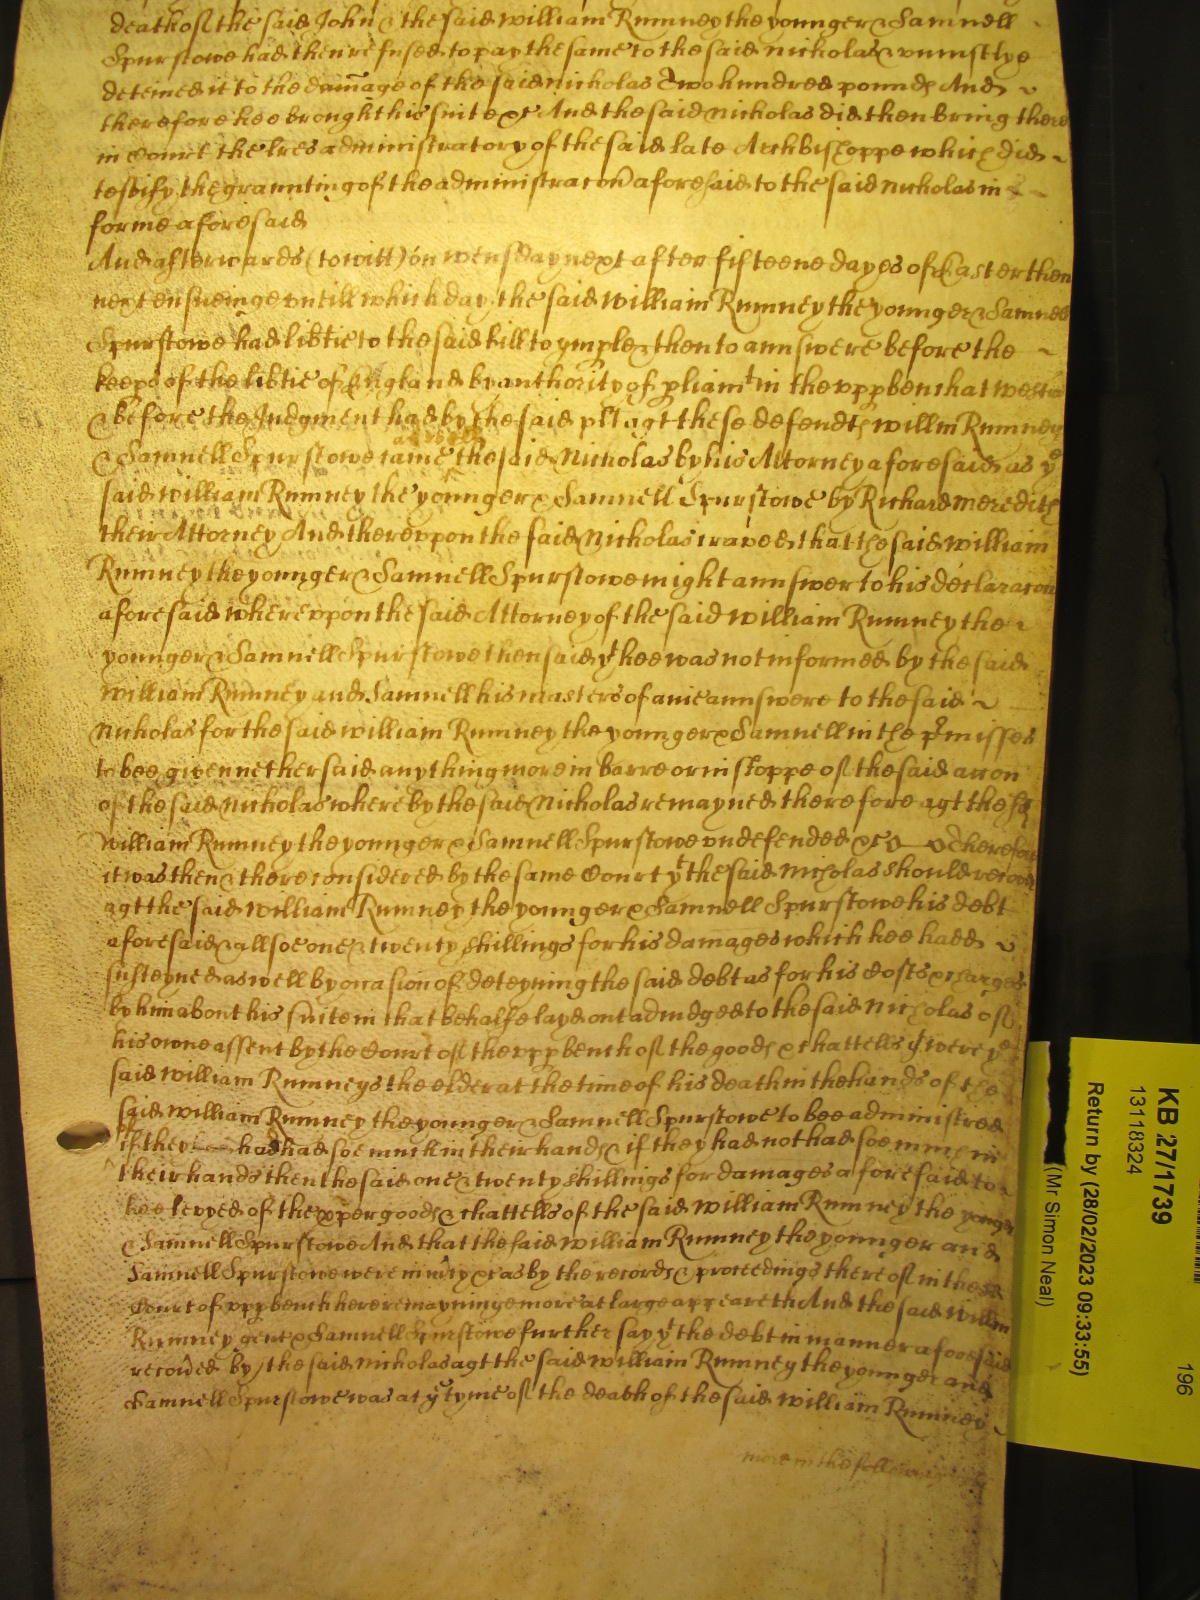 death of the said John & the said William Rumney the younger & Samuell
Spurstowe had then refused to pay the same to the said Nicholas & uniustlye
deteined it to the damage of the said Nicholas Two hundred pounds And
therefore hee brought his suite &c And the said Nicholas did then bring there
in Court the lres administratory of the said late Archbishoppe which did
testify the graunting of the administracon aforesaid to the said Nicholas in
forme aforesaid
And afterwards (to witt) on wensday next after fifteene dayes of Easter then
next ensueinge untill which day the said William Rumney the younger & Samuell
Spurstowe had libtie to the said bill to ymple & then to annswere before the
keeps of the libtie of England by authority of pliamt in the upp bench at Westm
& before the Judgment had by the said plt agt these defendts Willm Rumney
& Samuell Spurstowe came aswell the said Nicholas by his Attorney aforesaid as ye
said William Rumney the younger & Samuell Spurstowe by Richard Meredith
their Attorney And thereuppon the said Nicholas craved that the said William
Rumney the younger & Samuell Spurstowe might annswer to his declaracon
aforesaid whereuppon the said Attorney of the said William Rumney the
younger & Samuell Spurstowe then said yt hee was not informed by the said
William Rumney and Samuell his masters of anie annswere to the said
Nicholas for the said William Rumney the younger & Samuell in the pmisses
to bee given nether said any thing more in barre or in stoppe of the said accon
of the said Nicholas whereby the said Nicholas remayned therefore agt the sd
William Rumney the younger & Samuell Spurstowe undefended &c Therefore
it was then & there considered by the same Court yt the said Nicholas should recover
agt the said William Rumney the younger & Samuell Spurstowe his debt
aforesaid & allsoe one & twenty shillings for his damages which hee hadd
susteyned as well by occasion of deteyning the said debt as for his Costs & charges
by him about his suite in that behalfe layd out adiudged to the said Nicholas of
his owne assent by the Court of the upp bench of the goods & chattells yt were ye
said William Rumneys the elder at the time of his death in the hands of the
said William Rumney the younger & Samuell Spurstowe to bee administred
if they had had soe much in their hands & if they had not had soe much in
their hands then the said one & twenty shillings for damages aforesaid to
bee levyed of the pper goods & chattells of the said William Rumney the younger
& Samuell Spurstowe And that the said William Rumney the younger and
Samuell Spurstowe were in mcy &c as by the records & proceedings thereof in the sd
Court of upp bench here remayninge more at large appeareth And the said Willm
Rumney gent & Samuell Spurstowe further say yt the debt in manner aforesaid
recoved by the said Nicholas agt the said William Rumney the younger and
Samuell Spurstowe was at ye tyme of the death of the said William Rumney
more in the following
KB 27/1739
13118324
196
Return by (28/02/2023 09:33:55)
(Mr Simon Neal)